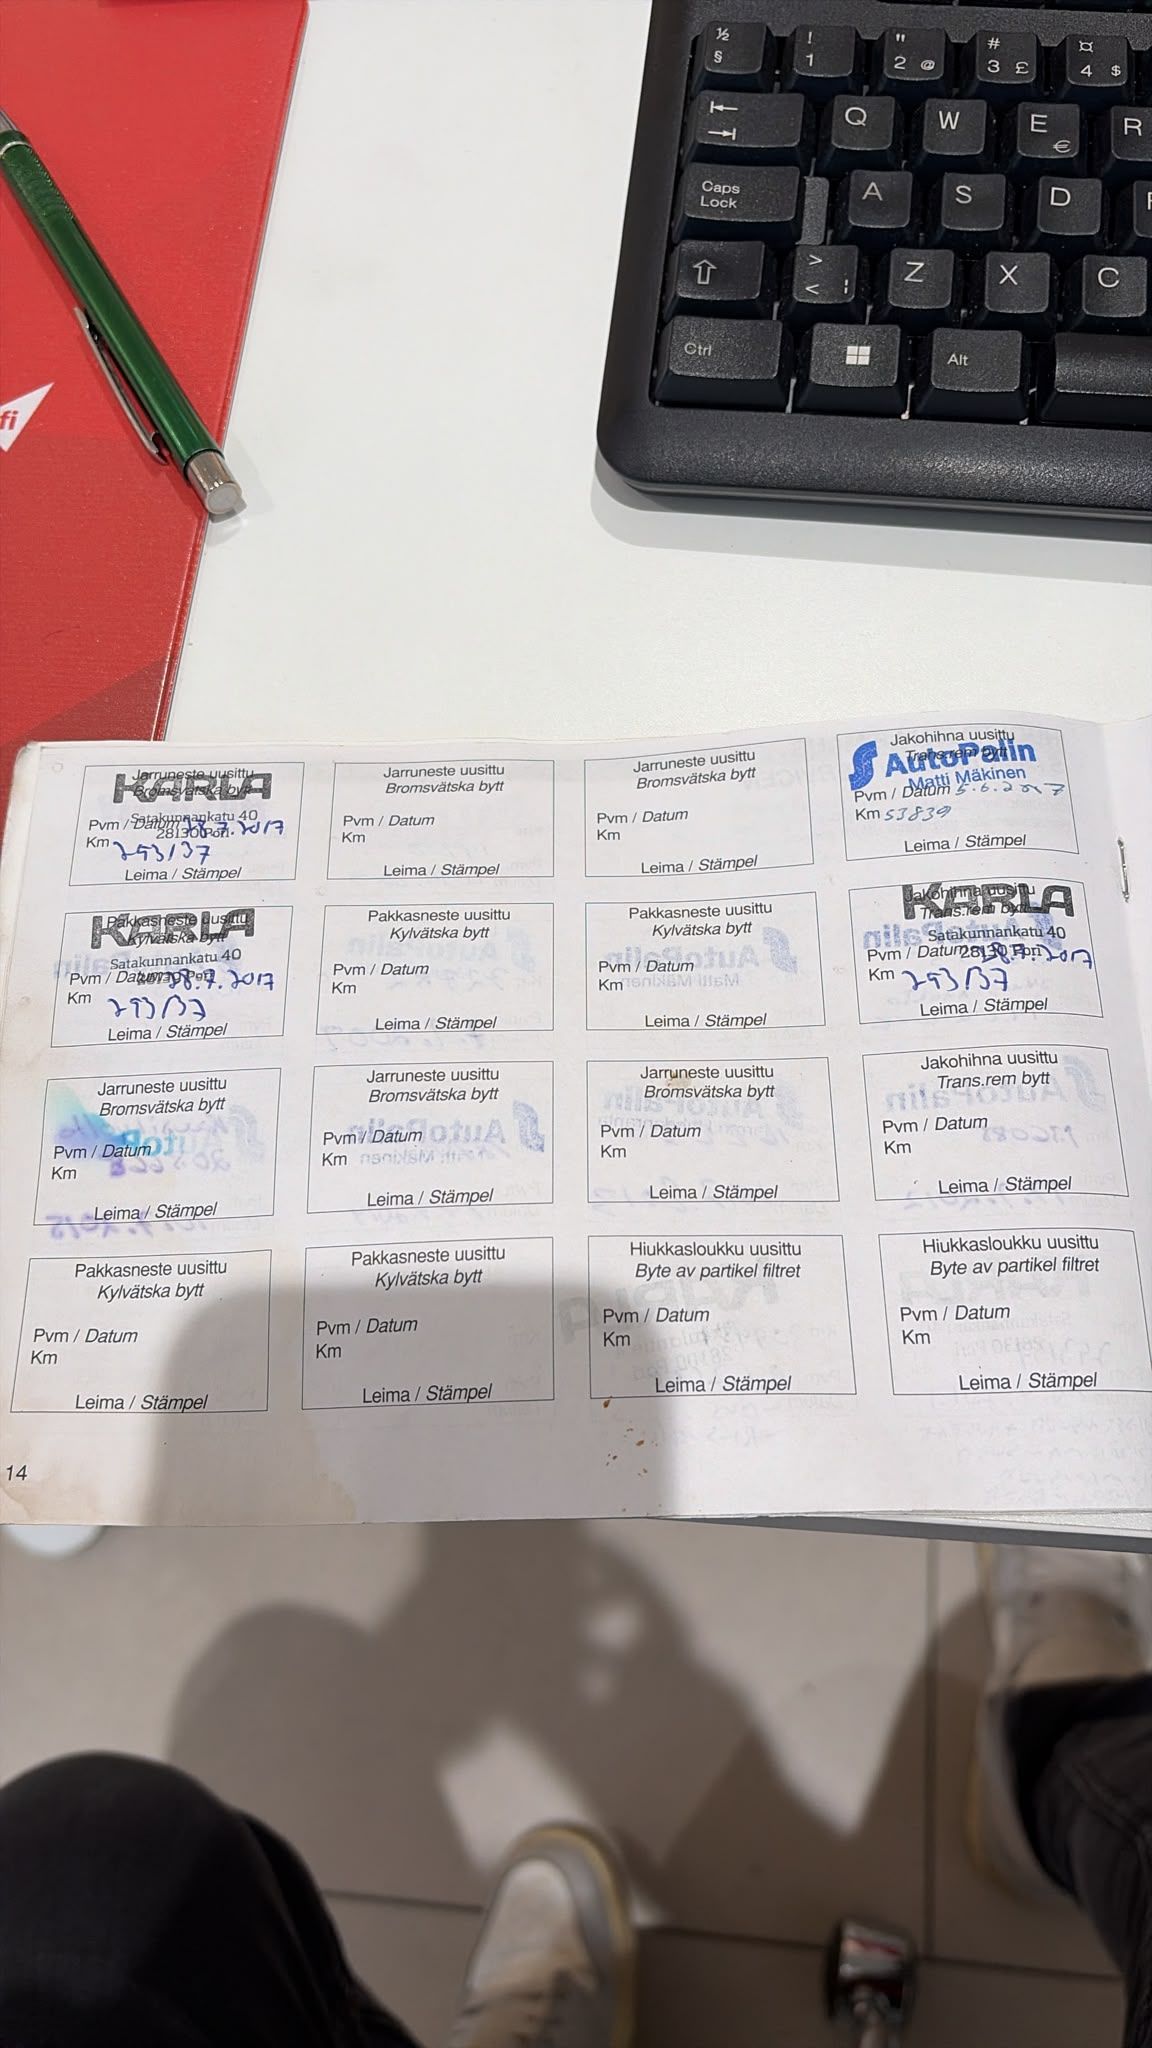 ½
§
!
1
"
2 @
#
3 £
¤
4 $
Q
W
E
€
R
Caps
Lock
A
S
D
>
< ¦
Z
X
C
Ctrl
Alt
fi
Jarruneste uusittu
Bromsvätska bytt
KARLA
Satakunnankatu 40
28130 Pori
Pvm / Datum 28.7.2017
Km 293137
Leima / Stämpel
Jarruneste uusittu
Bromsvätska bytt
Pvm / Datum
Km
Leima / Stämpel
Jarruneste uusittu
Bromsvätska bytt
Pvm / Datum
Km
Leima / Stämpel
Jakohihna uusittu
Trans.rem bytt
AutoPalin
Matti Mäkinen
Pvm / Datum
Km 53839
Leima / Stämpel
Pakkasneste uusittu
Kylvätska bytt
KARLA
Satakunnankatu 40
28130 Pori
Pvm / Datum 28.7.2017
Km
293137
Leima / Stämpel
Pakkasneste uusittu
Kylvätska bytt
Pvm / Datum
Km
Leima / Stämpel
Pakkasneste uusittu
Kylvätska bytt
Pvm / Datum
Km
Leima / Stämpel
Jakohihna uusittu
Trans.rem bytt
KARLA
Satakunnankatu 40
28130 Pori
Pvm / Datum 28.7.2017
Km 293137
Leima / Stämpel
Jarruneste uusittu
Bromsvätska bytt
Pvm / Datum
Km
Leima / Stämpel
Jarruneste uusittu
Bromsvätska bytt
Pvm / Datum
Km
Leima / Stämpel
Jarruneste uusittu
Bromsvätska bytt
Pvm / Datum
Km
Leima / Stämpel
Jakohihna uusittu
Trans.rem bytt
Pvm / Datum
Km
Leima / Stämpel
Pakkasneste uusittu
Kylvätska bytt
Pvm / Datum
Km
Leima / Stämpel
Pakkasneste uusittu
Kylvätska bytt
Pvm / Datum
Km
Leima / Stämpel
Hiukkasloukku uusittu
Byte av partikel filtret
Pvm / Datum
Km
Leima / Stämpel
Hiukkasloukku uusittu
Byte av partikel filtret
Pvm / Datum
Km
Leima / Stämpel
14